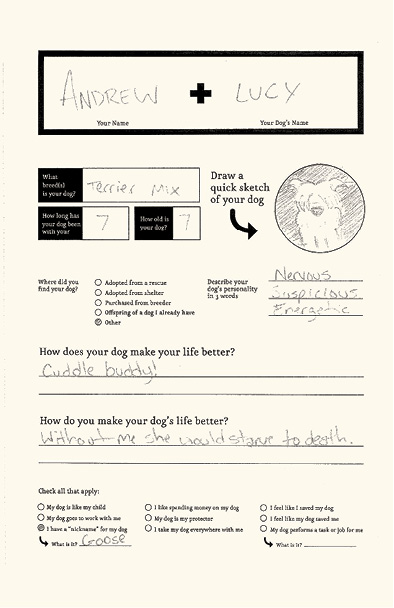 ANDREW + LUCY
Your Name Your Dog's Name
What breed(s) is your dog? Terrier Mix
How long has your dog been with your 7 How old is your dog? 7
Draw a
quick sketch
of your dog
Where did you
find your dog?
Adopted from a rescue
Adopted from shelter
Purchased from breeder
Offspring of a dog I already have
Other
Describe your
dog's personality
in 3 words
Nervous
Suspicious
Energetic
How does your dog make your life better?
Cuddle buddy!
How do you make your dog's life better?
Without me she would starve to death.
Check all that apply:
My dog is like my child
My dog goes to work with me
I have a "nickname" for my dog
What is it? Goose
I like spending money on my dog
My dog is my protector
I take my dog everywhere with me
I feel like I saved my dog
I feel like my dog saved me
My dog performs a task or job for me
What is it?